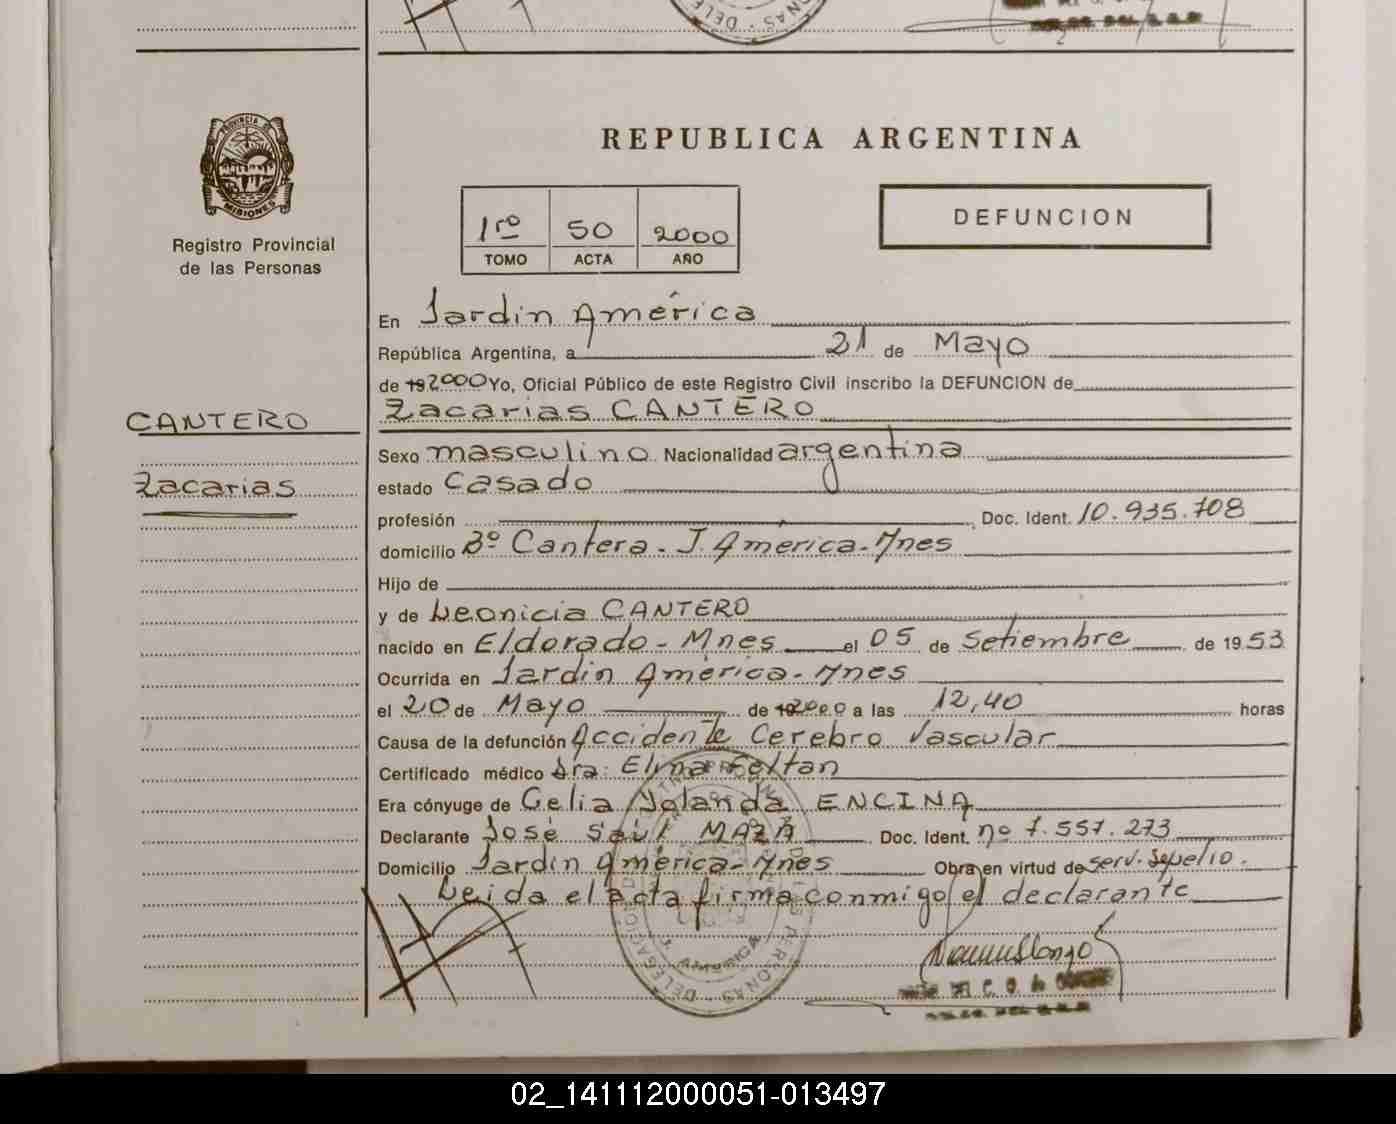 PROVINCIA DE
MISIONES
Registro Provincial
de las Personas
CANTERO
Zacarias
REPUBLICA ARGENTINA
1ro 50 2000
TOMO ACTA AÑO
DEFUNCION
En Jardín América
República Argentina, a 21 de Mayo
de 19 2000 Yo, Oficial Público de este Registro Civil inscribo la DEFUNCION de
Zacarias CANTERO
Sexo masculino Nacionalidad argentina
estado Casado
profesión Doc. Ident. 10.935.708
domicilio Bº Cantera - J. América - Mnes
Hijo de
y de Leonicia CANTERO
nacido en Eldorado - Mnes el 05 de Setiembre de 1953
Ocurrida en Jardín América - Mnes
el 20 de Mayo de 19 2000 a las 12,40 horas
Causa de la defunción Accidente Cerebro Vascular
Certificado médico Dra: Elina Feltan
Era cónyuge de Celia Yolanda ENCINA
Declarante José Saúl MAZA Doc. Ident. nº 7.557.273
Domicilio Jardín América - Mnes Obra en virtud de serv. Sepelio.
Leida el acta firma conmigo el declarante
J. AMERICA
02_141112000051-013497